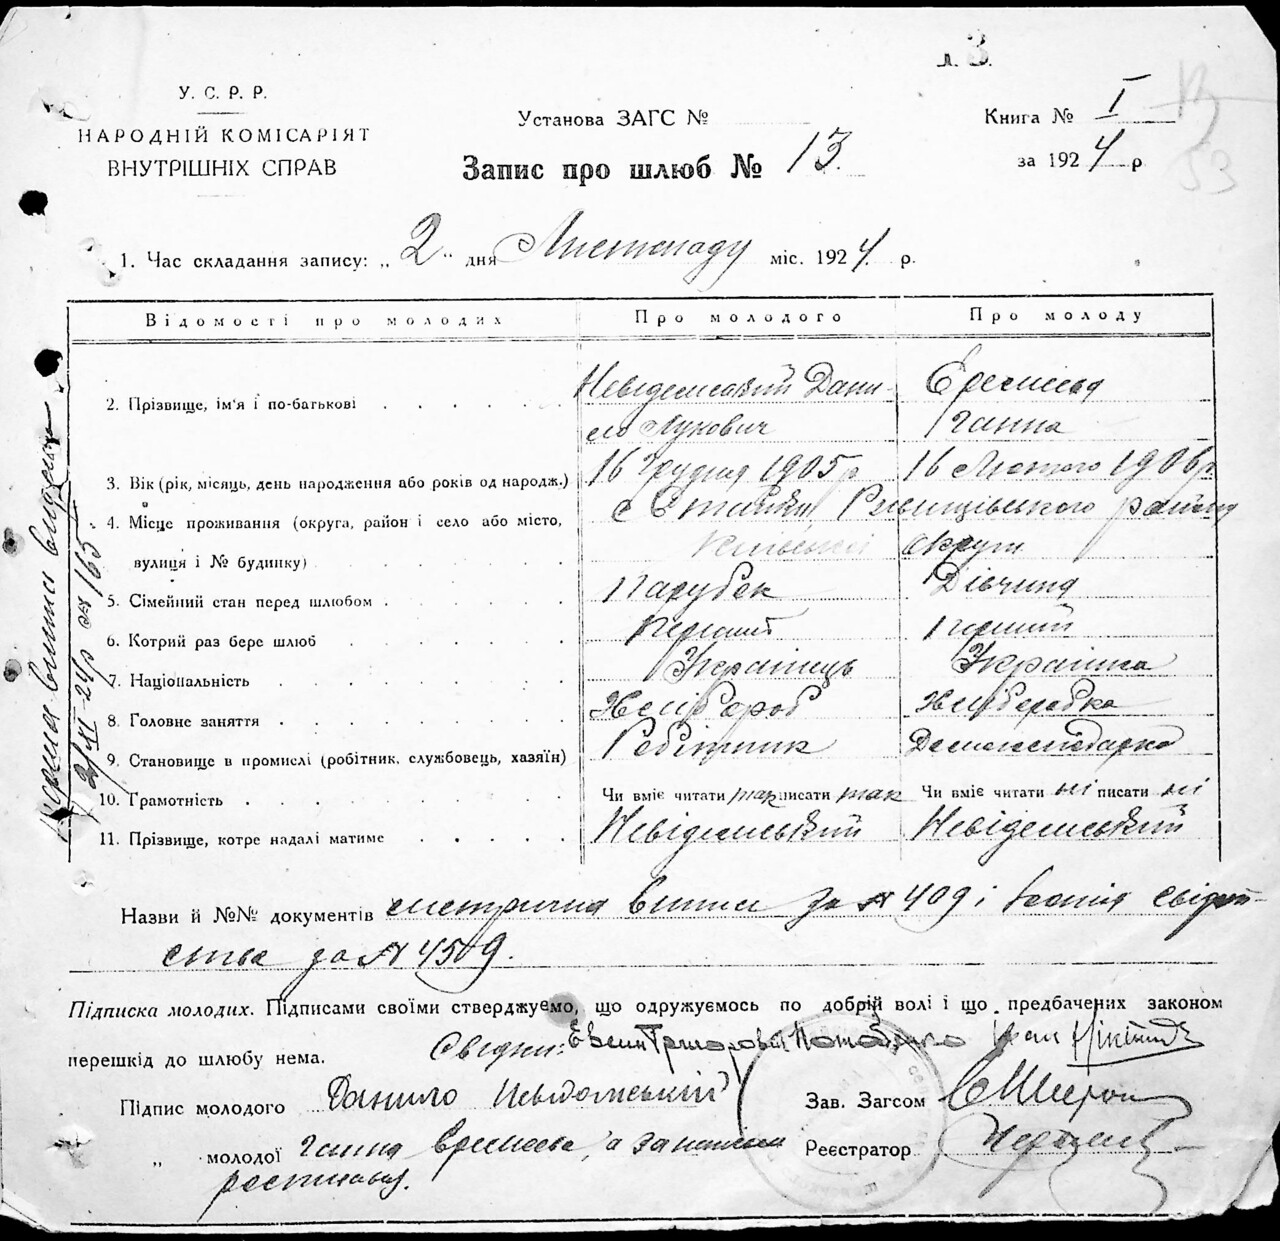 л. 3.
У. С. Р. Р.
НАРОДНІЙ КОМІСАРІЯТ
ВНУТРІШНІХ СПРАВ
Установа ЗАГС №
Запис про шлюб № 13.
Книга № I
за 1924 р
53
1. Час складання запису: „2" дня Листопаду міс. 1924. р.
Відомості про молодих Про молодого Про молоду
2. Прізвище, ім'я і по-батькові Невідомський Дани-
ло Лукович Ганна
3. Вік (рік, місяць, день народження або років од народж.) 16 Грудня 1905 р 16 Лютого 1906 р
4. Місце проживання (округа, район і село або місто, с Стайки, Ржищівського району
вулиця і № будинку) Київської округи
5. Сімейний стан перед шлюбом Парубок Дівчина
6. Котрий раз бере шлюб Перший Перший
7. Національність Українець Українка
8. Головне заняття Хлібороб Хліборобка
9. Становище в промислі (робітник, службовець, хазяїн) Робітник Домогосподарка
10. Грамотність Чи вміє читати так писати так Чи вміє читати ні писати ні
11. Прізвище, котре надалі матиме Невідомський Невідомський
Назви й №№ документів метрична випис за № 409 і копія свідоц-
ства за № 4509.
Підписка молодих. Підписами своїми стверджуємо, що одружуємось по добрій волі і що предбачених законом
перешкід до шлюбу нема. Свідки:
Підпис молодого Данило Невідомський Зав. Загсом
„ молодої Ганна а за неї Реєстратор
Копія випис видана
2/XI-24 р за № 165